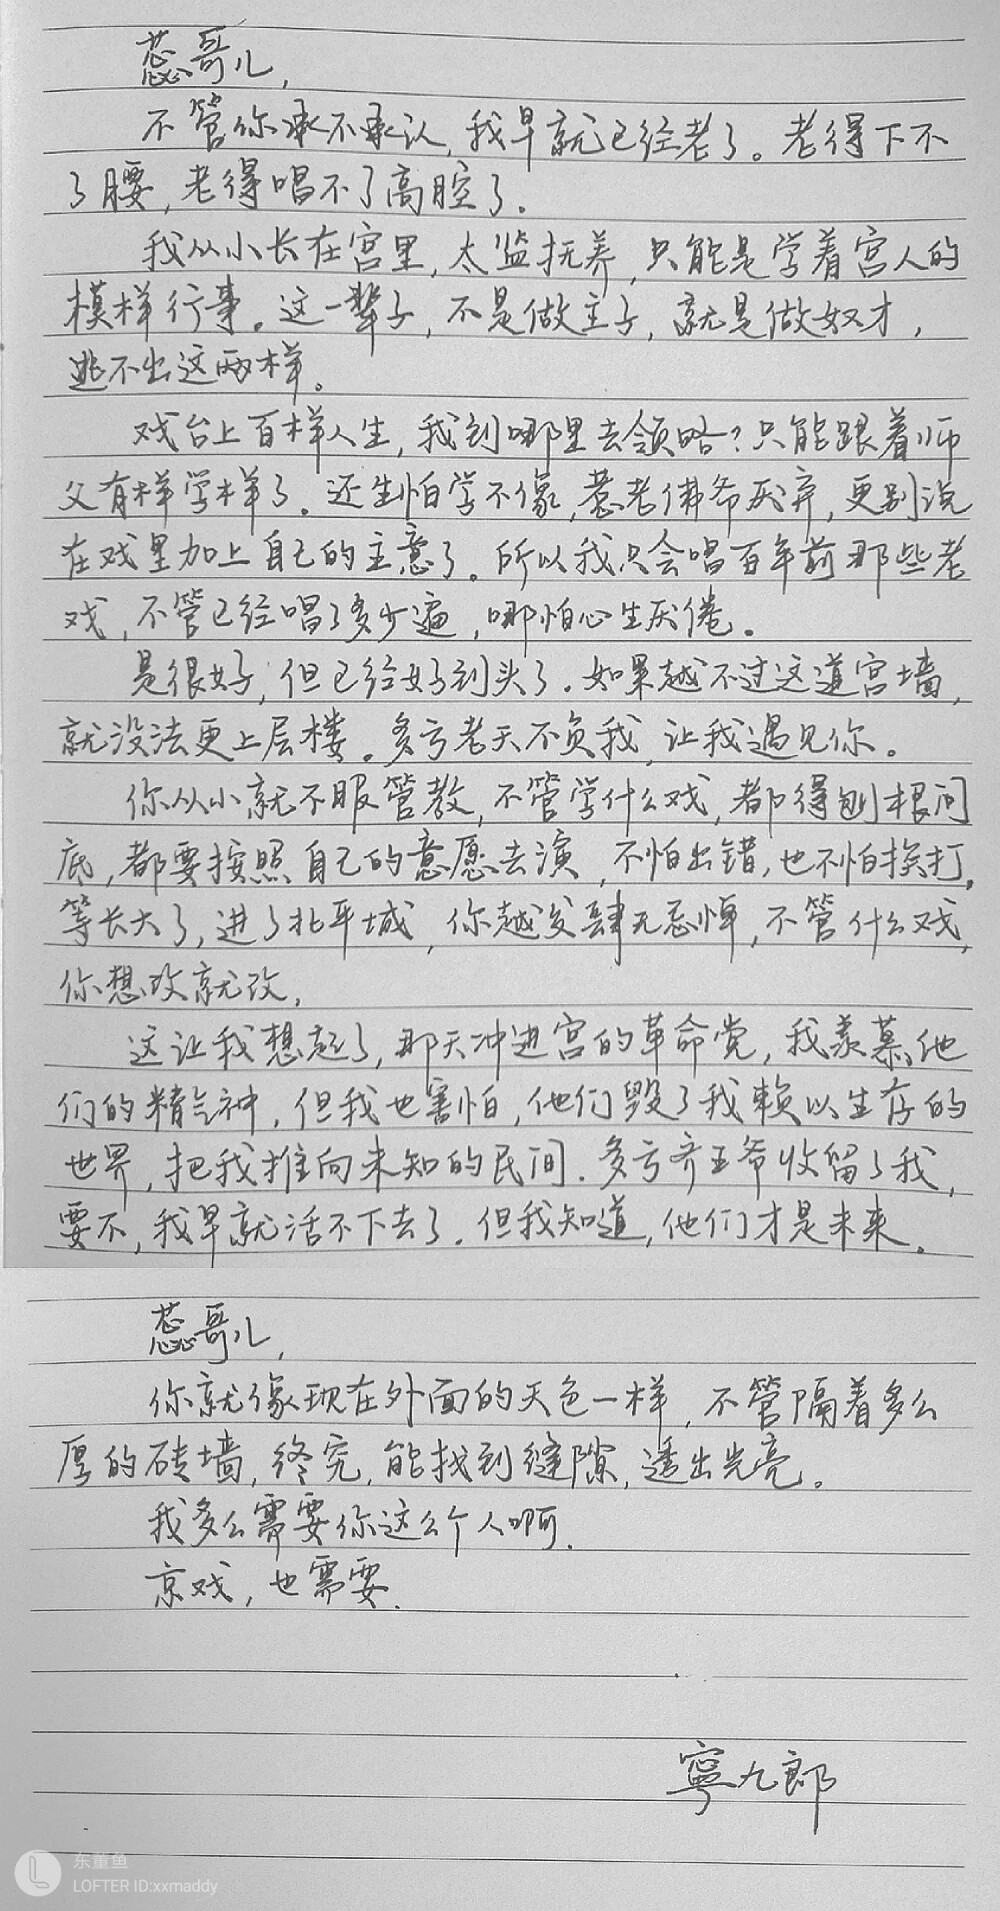 蕊哥儿,
不管你承不承认,我早就已经老了。老得下不
了腰,老得唱不了高腔了.
我从小长在宫里,太监抚养,只能是学着宫人的
模样行事。这一辈子,不是做主子,就是做奴才,
逃不出这两样。
戏台上百样人生,我到哪里去领略?只能跟着师
父有样学样了.还生怕学不像,惹老佛爷厌弃,更别说
在戏里加上自己的主意了。所以我只会唱百年前那些老
戏,不管已经唱了多少遍,哪怕心生厌倦。
是很好,但已经好到头了.如果越不过这道宫墙,
就没法更上层楼。多亏老天不负我,让我遇见你。
你从小就不服管教,不管学什么戏,都得刨根问
底,都要按照自己的意愿去演,不怕出错,也不怕挨打,
等长大了,进了北平城,你越发肆无忌惮,不管什么戏,
你想改就改,
这让我想起了,那天冲进宫的革命党,我羡慕他
们的精气神,但我也害怕,他们毁了我赖以生存的
世界,把我推向未知的民间.多亏齐王爷收留了我,
要不,我早就活不下去了.但我知道,他们才是未来.
蕊哥儿,
你就像现在外面的天色一样,不管隔着多么
厚的砖墙,终究,能找到缝隙,透出光亮。
我多么需要你这么个人啊.
京戏,也需要.
寧九郎
东董鱼
LOFTER ID:xxmaddy